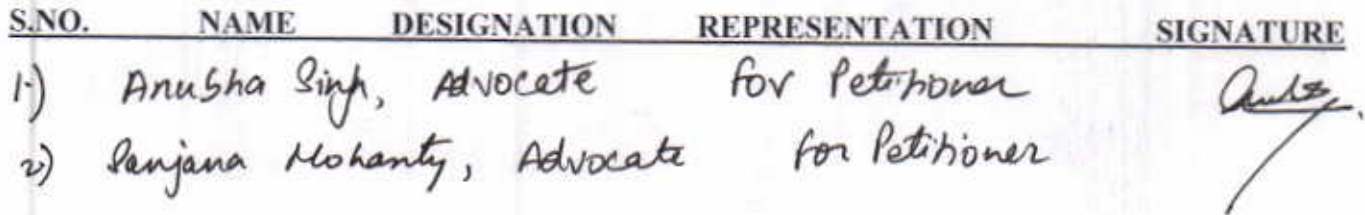 S.NO. NAME DESIGNATION REPRESENTATION SIGNATURE
1.) Anusha Singh, Advocate for Petitioner
2) Sanjana Mohanty, Advocate for Petitioner